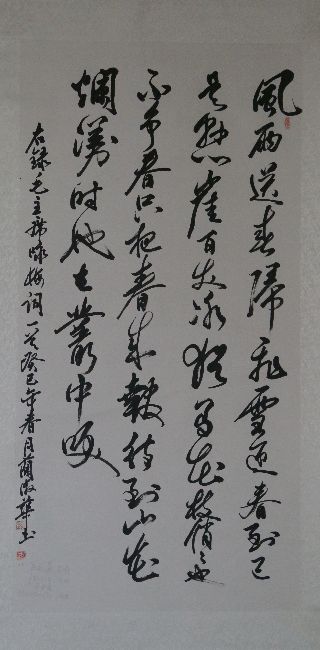 風雨送春歸飛雪迎春到已
是懸崖百丈冰猶有花枝俏々也
不爭春只把春來報待到山花
爛漫時她在叢中咲
右錄毛主席咏梅詞一首癸巳年春月淑華书